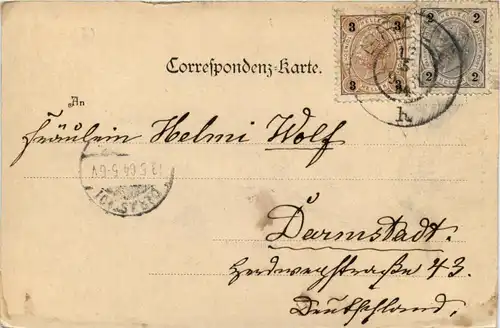 3 3
2 2
Correspondenz-Karte.
An
Fräulein Helmi Wolf
13.5.04.5-6V
Darmstadt.
Herdwegstraße 43.
Deutschland,